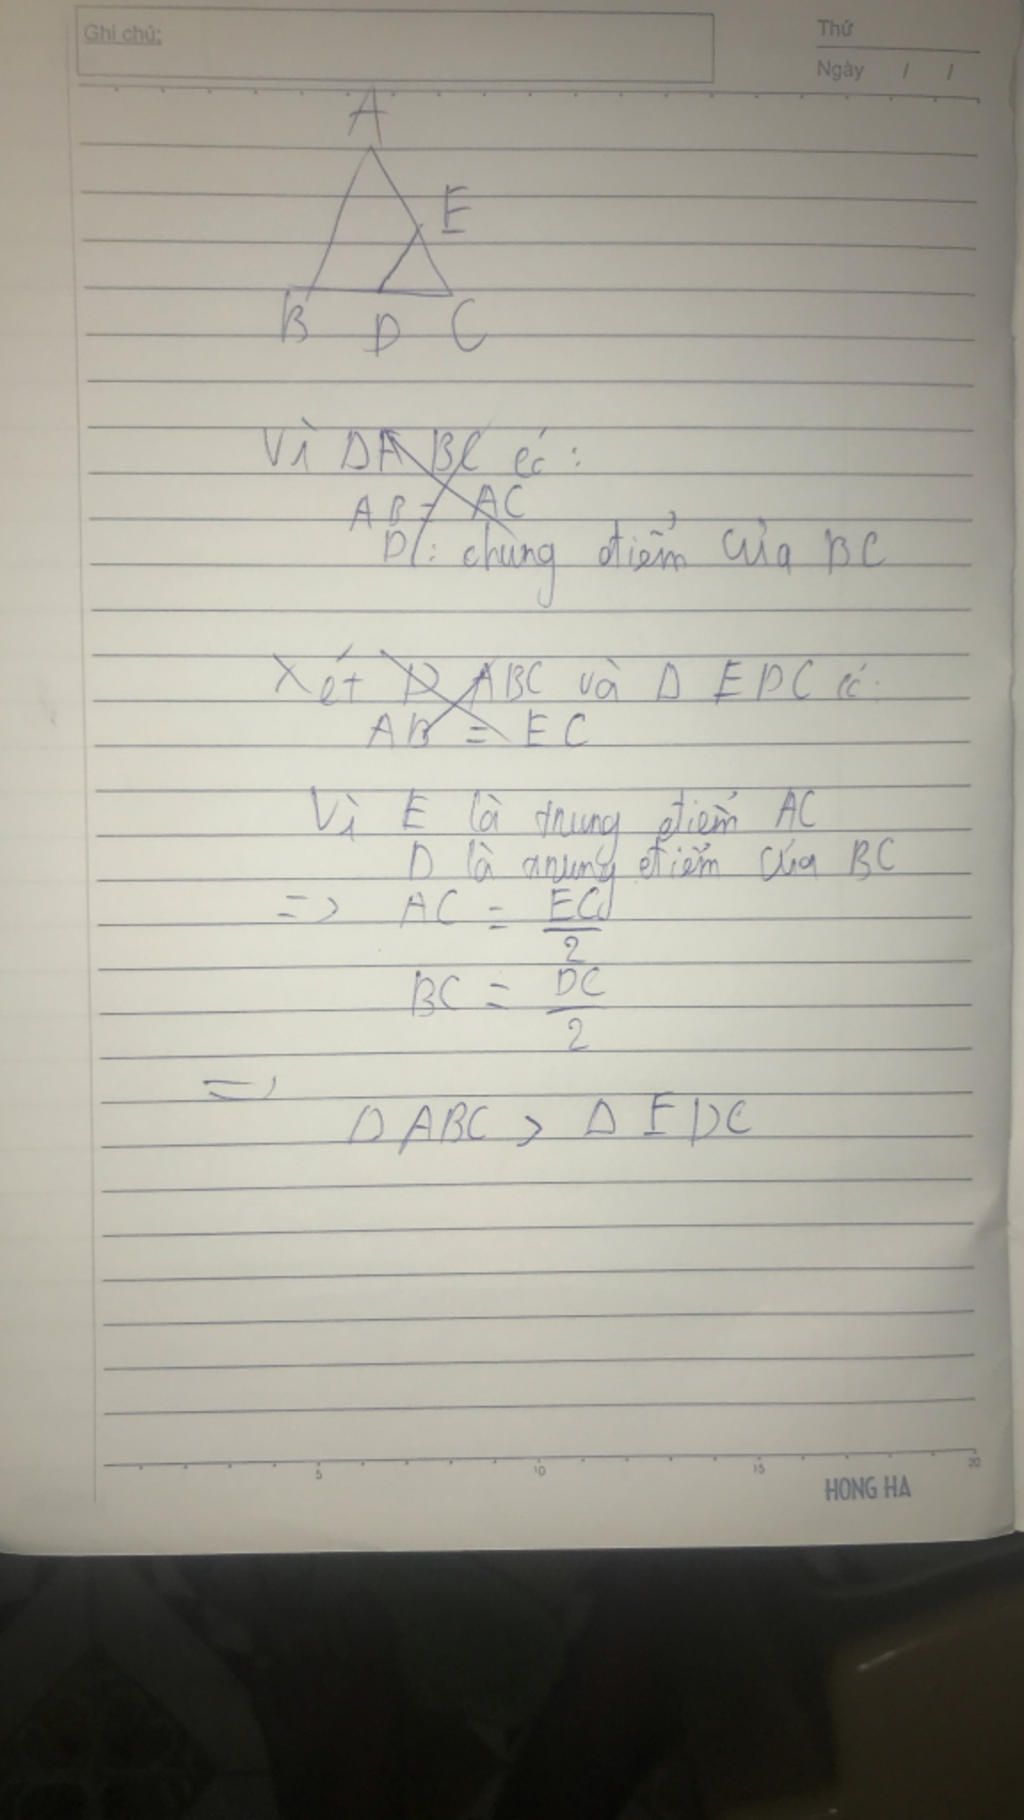 Ghi chú:
Thứ
Ngày / /
A
E
B D C
Vì DA BC có:
AB = AC
D: chung điểm của BC
Xét D ABC và D EDC có:
AB = EC
Vì E là trung điểm AC
D là trung điểm của BC
=> AC = EC/2
BC = DC/2
=>
Δ ABC > Δ EDC
5 10 15 20
HONG HA